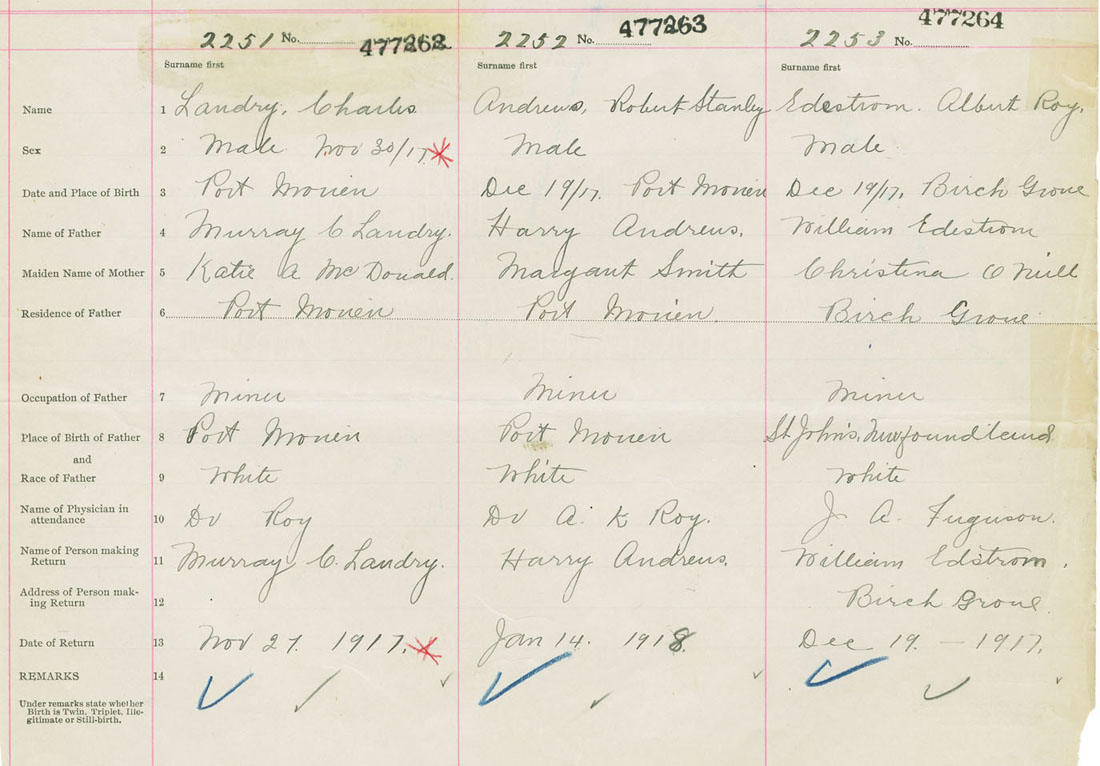 2251 No. 477262 2252 No. 477263 2253 No. 477264
Surname first Surname first Surname first
Name 1 Landry, Charles Andrews, Robert Stanley Edestrom. Albert Roy.
Sex 2 Male Nov 30/17 Male Male
Date and Place of Birth 3 Port Morien Dec 19/17. Port Morien Dec 19/17, Birch Grove
Name of Father 4 Murray C Landry. Harry Andrews. William Edestrom
Maiden Name of Mother 5 Katie A McDonald. Margaret Smith Christina O Niell
Residence of Father 6 Port Morien Port Morien. Birch Grove
Occupation of Father 7 Miner Miner Miner
Place of Birth of Father 8 Port Morien Port Morien St John's, Newfoundland
and
Race of Father 9 White White White
Name of Physician in
attendance 10 Dr Roy Dr A. K Roy. J. A. Fuguson.
Name of Person making
Return 11 Murray C. Landry. Harry Andrews. William Edstrom.
Address of Person mak-
ing Return 12 Birch Grove
Date of Return 13 Nov 27. 1917. Jan 14. 1918. Dec 19. — 1917.
REMARKS 14
Under remarks state whether
Birth is Twin, Triplet, Ille-
gitimate or Still-birth.